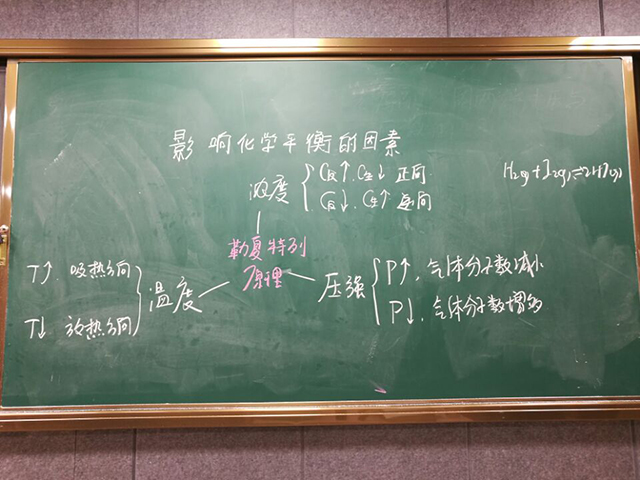 影响化学平衡的因素
浓度
C反↑.C生↓ 正向
C反↓.C生↑ 逆向
H₂(g)+I₂(g)⇌2HI(g)
勒夏特列
原理
T↑ 吸热方向
温度
T↓ 放热方向
压强
P↑,气体分子数减小
P↓,气体分子数增多